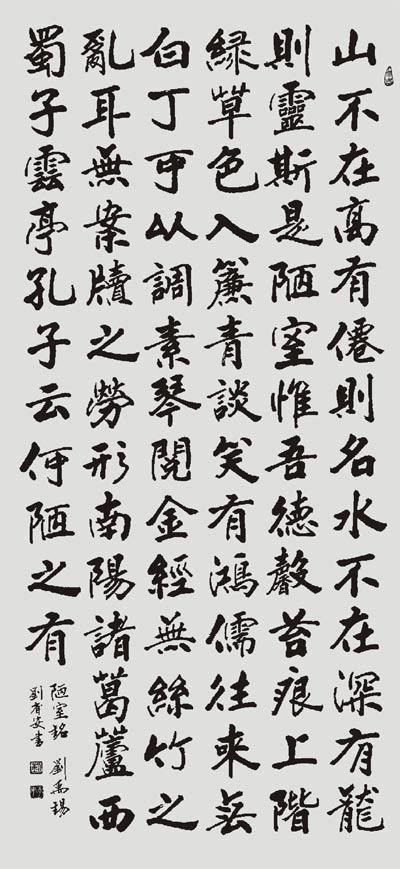 山不在高有僊則名水不在深有龍
則靈斯是陋室惟吾德馨苔痕上階
緑草色入簾青談笑有鴻儒往來無
白丁可以調素琴閱金經無絲竹之
亂耳無案牘之勞形南陽諸葛蘆西
蜀子雲亭孔子云何陋之有
陋室銘 劉禹錫
劉 書